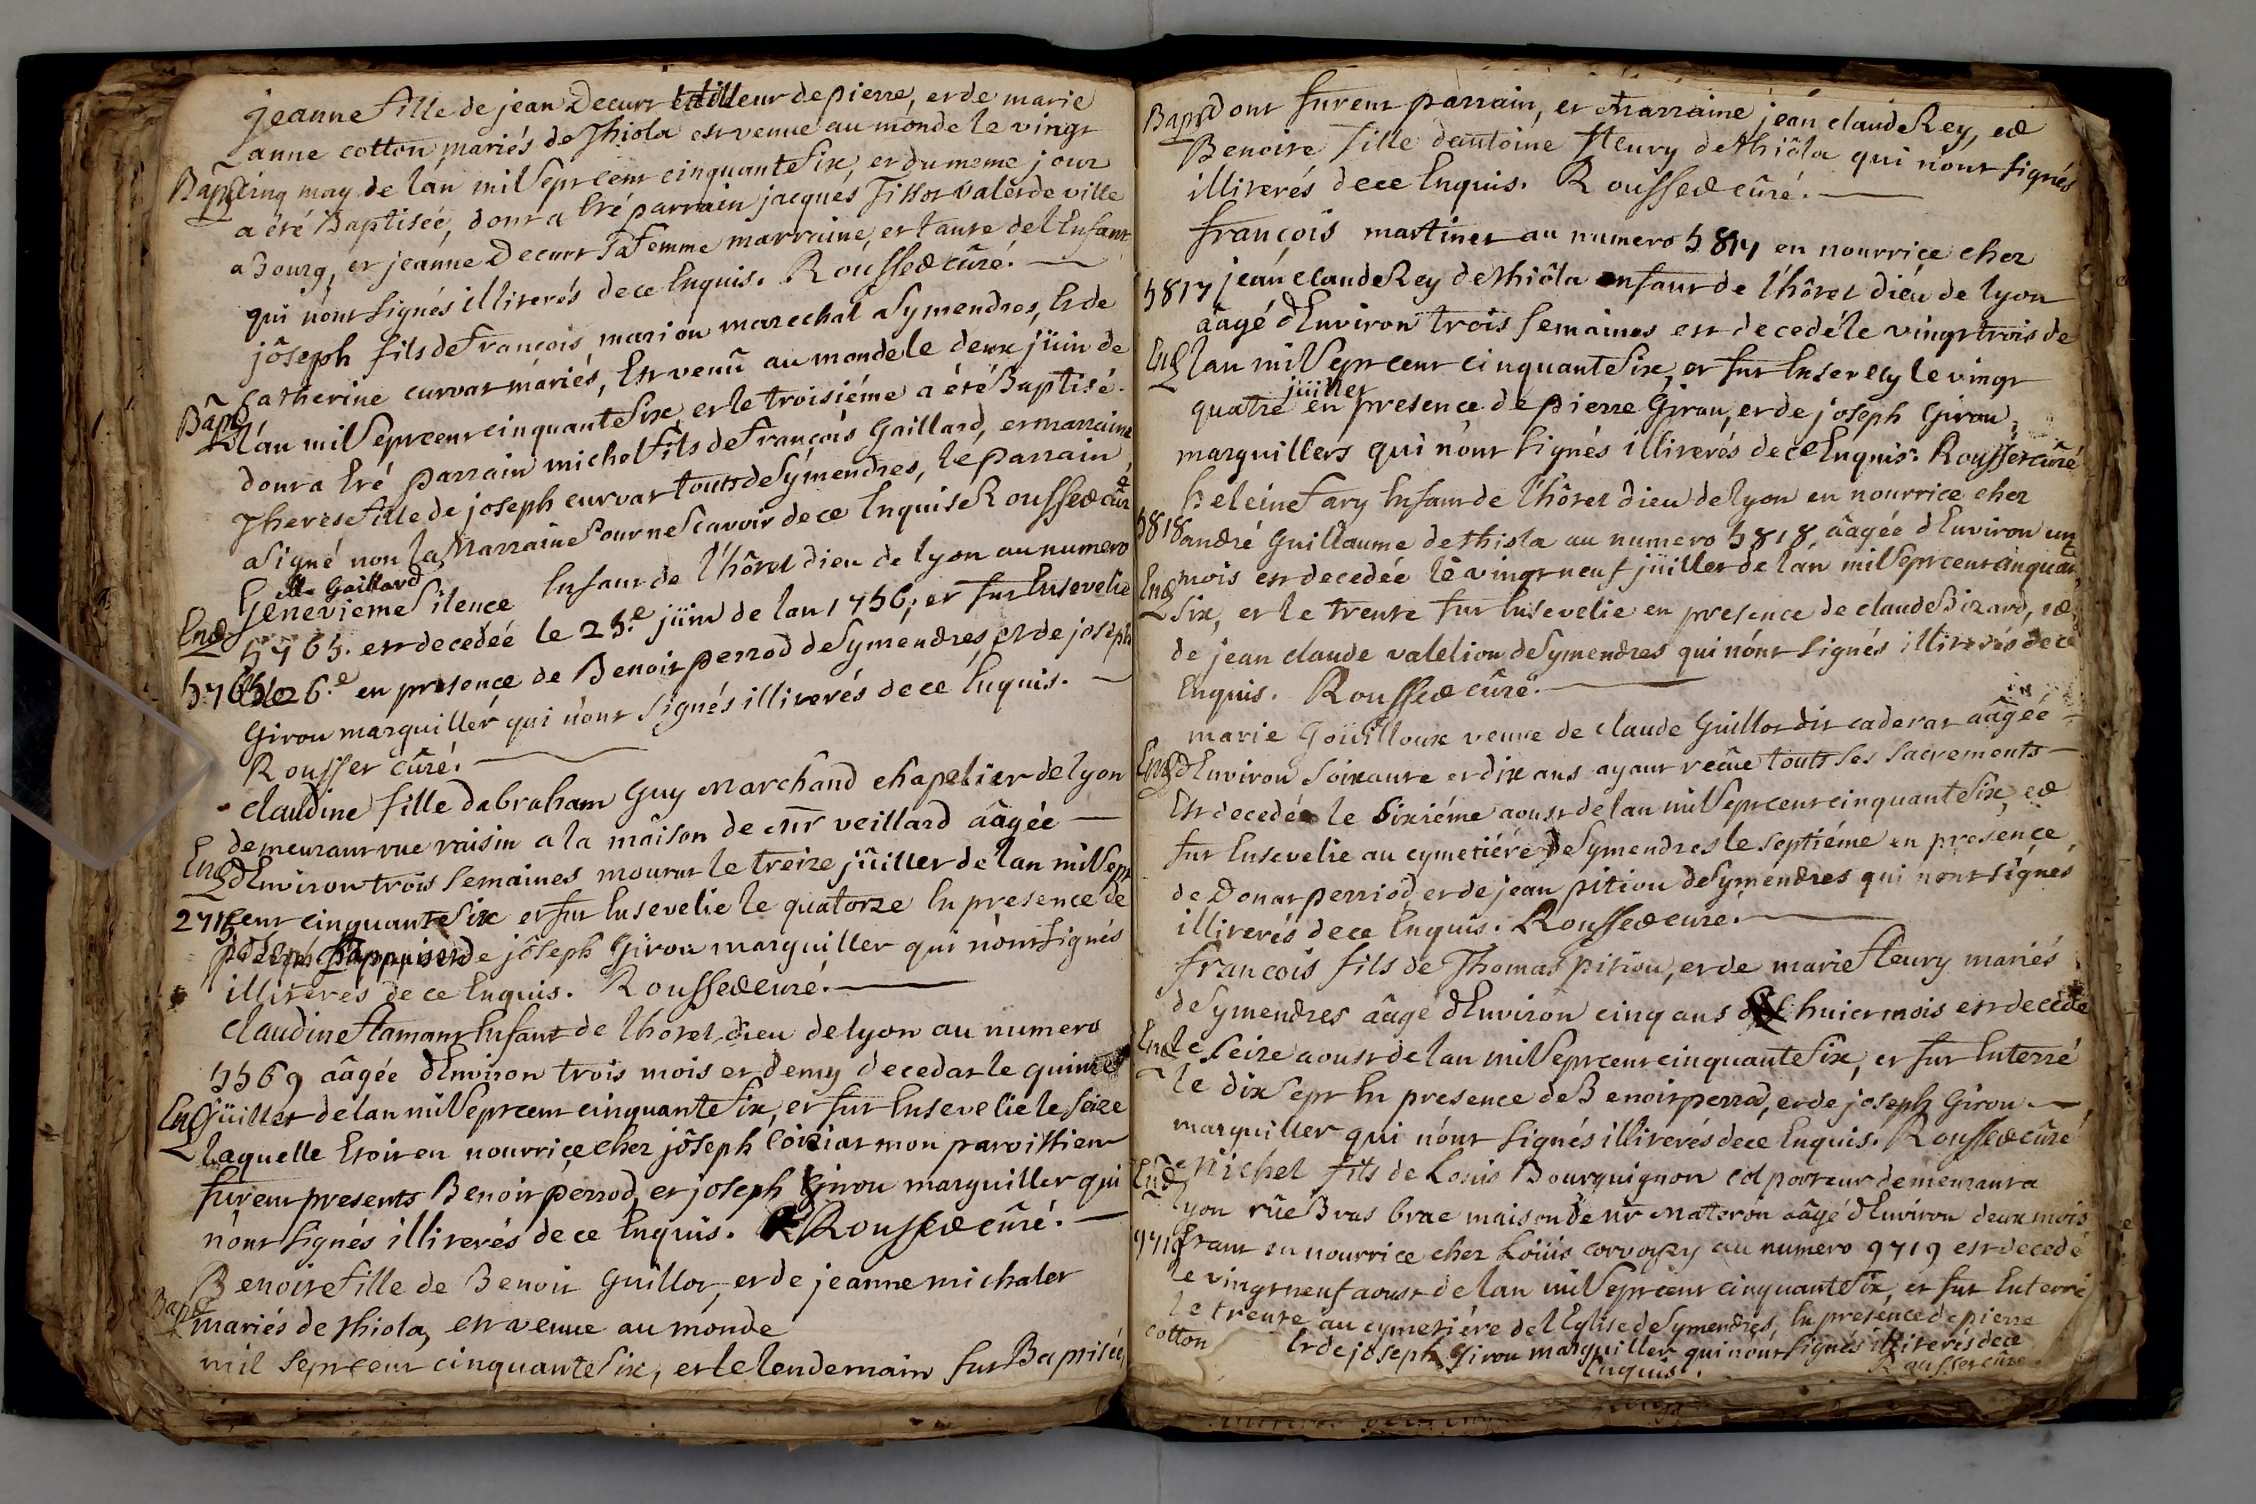 jeanne fille de jean Decurt tailleur de pierre, et de marie
anne cotton mariés de Thiola est venuë au monde le vingt
Bapt cinq may de l'an mil sept cent cinquante six, et du meme jour
a été Baptisée, dont a été parrain jacques Tissot valet de ville
a Bourg, et jeanne Decurt sa femme marraine, et tante de l'Enfant
qui n'ont signés illiterés de ce Enquis. Rousset cûré.
jôseph fils de François marion marechal a Symendres, Et de
catherine curvat mariés, Est venû au monde le deux jüin de
Bapt l'an mil sept cent cinquante six et le troisiéme a été Baptisé.
dont a Eté parrain michel fils de François Gaillard, et marraine
Therese fille de joseph curvat touts de Symendres, le parrain
a signé non la Marraine pour ne scavoir de ce Enquise Rousset curé
Gaillard
Genevieme Silence Enfant de l'hôtel dieu de lyon au numero
End 5765. est decedée le 25.e jüin de lan 1756, et fut Ensevelie
5765 le 26.e en presence de Benoit perrod de Symendres, et de joseph
Girou marguiller qui n'ont signés illiterés de ce Enquis.
Rousset cûré.
claudine fille dabraham Guy marchand chapelier de lyon
demeurant rue raisin a la mâison de mr veillard âagée
End d'Environ trois semaines mourut le treize jüillet de lan mil sept
2715 cent cinquante six et fut Ensevelie le quatorze En presence de
et de jôseph Girou marguiller qui n'ont signés
illiterés de ce Enquis. Rousset curé.
claudine flamant Enfant de l'hôtel dieu de lyon au numero
5569 âagée d'Environ trois mois et demy decedat le quinze
End jüillet de lan mil sept cent cinquante six, et fut Ensevelie le seize
laquelle Etoit en nourrice chez jôseph loiziat mon paroissien
furent presents Benoit perrod, et joseph Girou marguiller qui
n'ont signés illiterés de ce Enquis. Rousset cûré.
Benoite fille de Benoit Guillot, et de jeanne michalet
Bapt mariés de thiola, est venue au monde
mil sept cent cinquante six, et le lendemain fut Baptisée,
Bapt Dont furent parrain, et Marraine jean claude Rey, et
Benoite fille dantoine fleury de thiôla qui n'ont signés
illiterés de ce Enquis. Rousset cûré.
françois martinet au numero 5817 en nourrice chez
5817 jean claude Rey de thiôla enfant de l'hôtel dieu de lyon
âagé d'Environ trois semaines est decedé le vingt trois de
End lan mil sept cent cinquante six, et fut Ensevely le vingt
jüillet
quatre en presence de pierre Girou, et de joseph Girou,
marguillers qui n'ont signés illiterés de ce Enquis. Rousset cûré
heleine Fary Enfant de l'hôtel dieu de lyon en nourrice chez
5818 andré Guillaume de thiola au numero 5818, âagée d'Environ un
End mois est decedée le vingt neuf jüillet de l'an mil sept cent cinquante
six, et le trente fut Ensevelie en presence de claude Bizard, et
de jean claude valelion de Symendres qui n'ont signés illiterés de ce
Enquis. Rousset cûré.
marie Goüilloux veuve de claude Guillot dit caderat âagée
End d'Environ soixante et dix ans ayant recûe touts ses sacrements
Est decedée le sixiéme aoust de lan mil sept cent cinquante six, et
fut Ensevelie au cymetiére de Symendres le septiéme en presence
de Donat perriod, et de jean pitiou de Symendres qui n'ont signés
illiterés de ce Enquis. Rousset curé.
francois fils de Thomas pitiou, et de marie fleury mariés
de Symendres âagé d'Environ cinq ans huict mois est decedé
End le seize aoust de lan mil sept cent cinquante six, et fut Enterré
le dix sept En presence de Benoit perrod, et de joseph Girou
marguiller qui n'ont signés illiterés de ce Enquis. Rousset cûré
End Michel fils de Louis Bourguignon colporteur demeurant a
lyon rûe Bras brac maison de mr Materon âagé d'Environ deux mois
9719 Etant en nourrice chez Loüis corvozy au numero 9719 est decedé
le vingt neuf aoust de lan mil sept cent cinquante six, et fut Enterré
le trente au cymetiére de l'Eglise de Symendres, En presence de pierre
cotton Et de jôseph Girou marguiller qui n'ont signés illiterés de ce
Enquis. Rousset cûré.